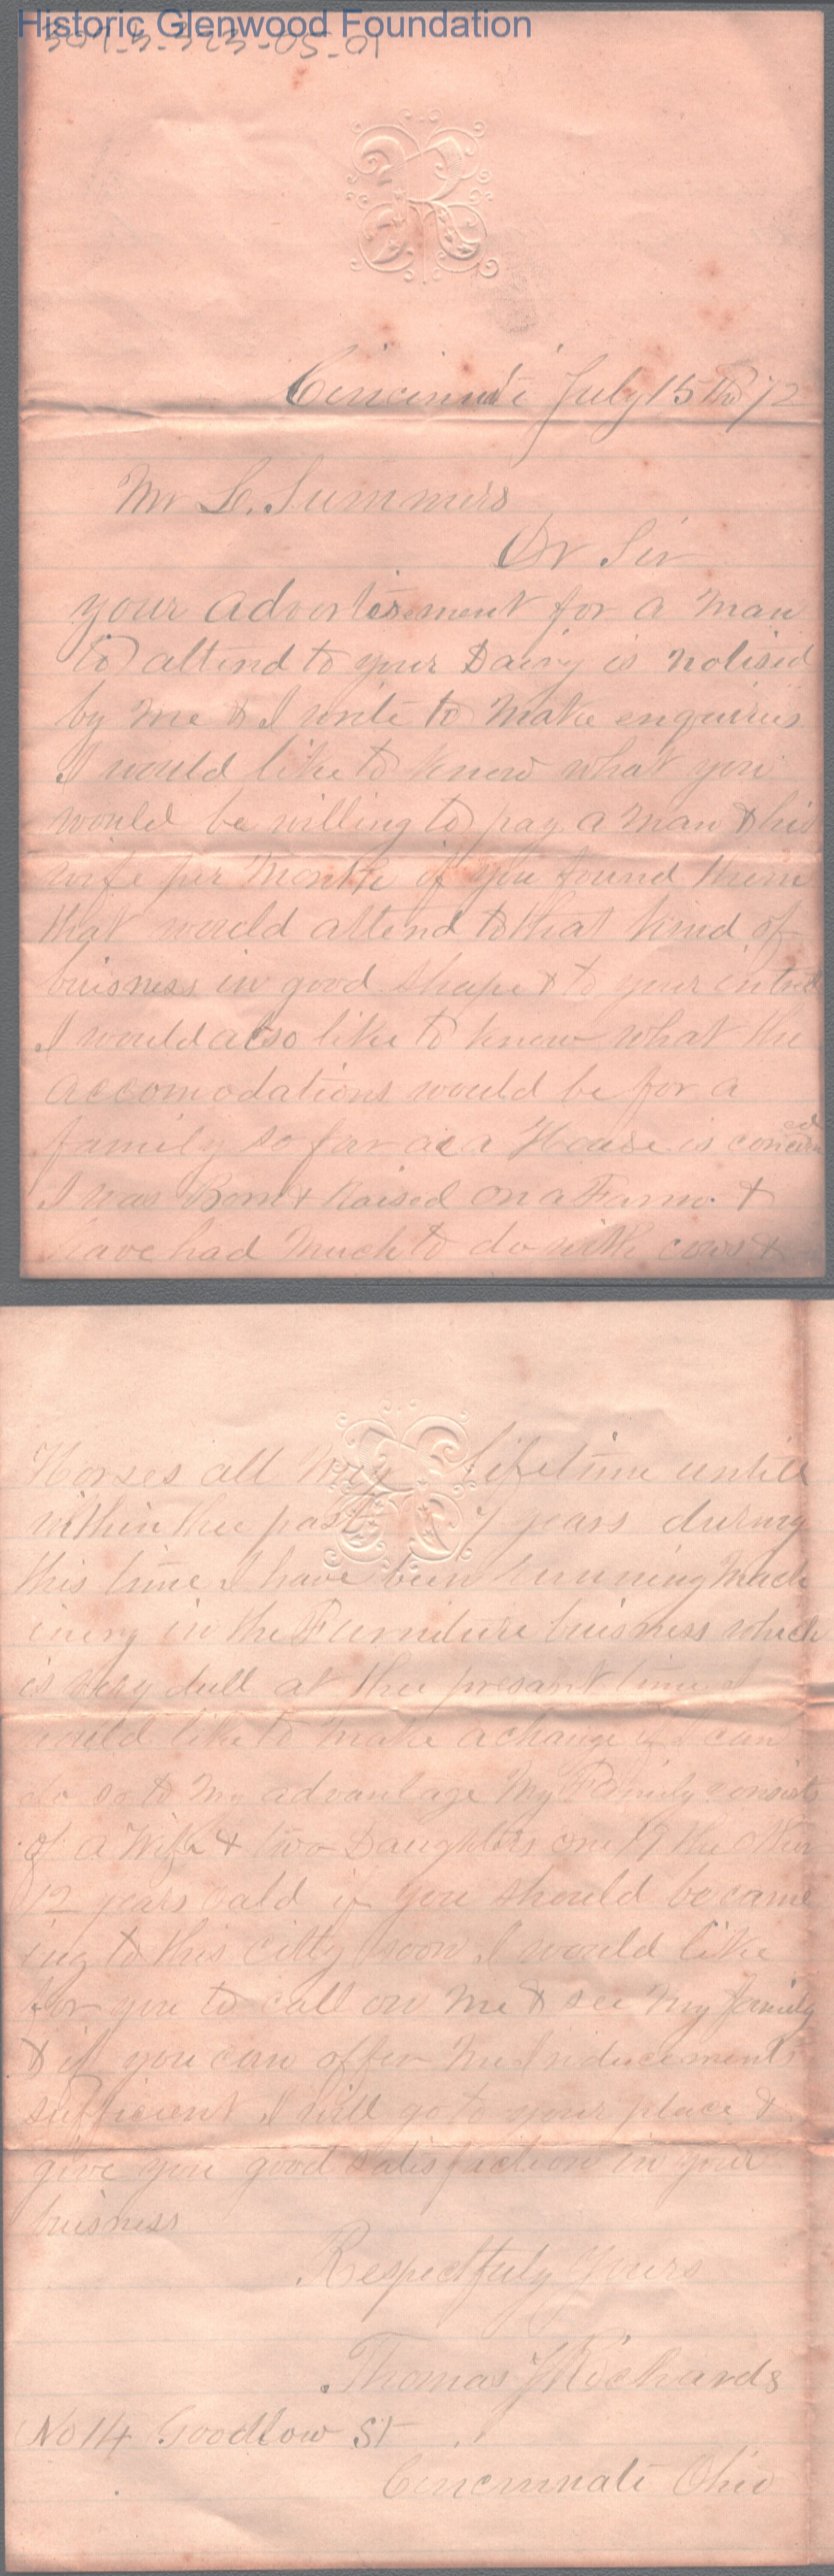 Historic Glenwood Foundation
307-5-323-05-01
R
Cincinnati July 15th 72
Mr L. Summers
Dr Sir
your advertisement for a man
to attend to your Dairy is notised
by me & I write to make enquiries
I would like to know what you
would be willing to pay a man & his
wife per Month if you found them
that would attend to that kind of
buisness in good shape & to your
I would also like to know what the
accomodations would be for a
family so far as a House is concerned
I was Born & Raised on a Farm &
have had much to do with cows &
Horses all my lifetime untill
within the past 7 years during
this time I have been running mach
inery in the Furniture buisness which
is very dull at the presant time I
would like to make a change if I can
do so to my advantage My Family consists
of a Wife & two Daughters one 19 the other
12 years oald if you should be came
ing to this citty soon I would like
for you to call on me & see my family
& if you can offer me Inducements
sufficient I will go to your place &
give you good satisfaction in your
buisness
Respectfuly yours
Thomas J Richards
No 14 Goodlow St
Cincinnati Ohio